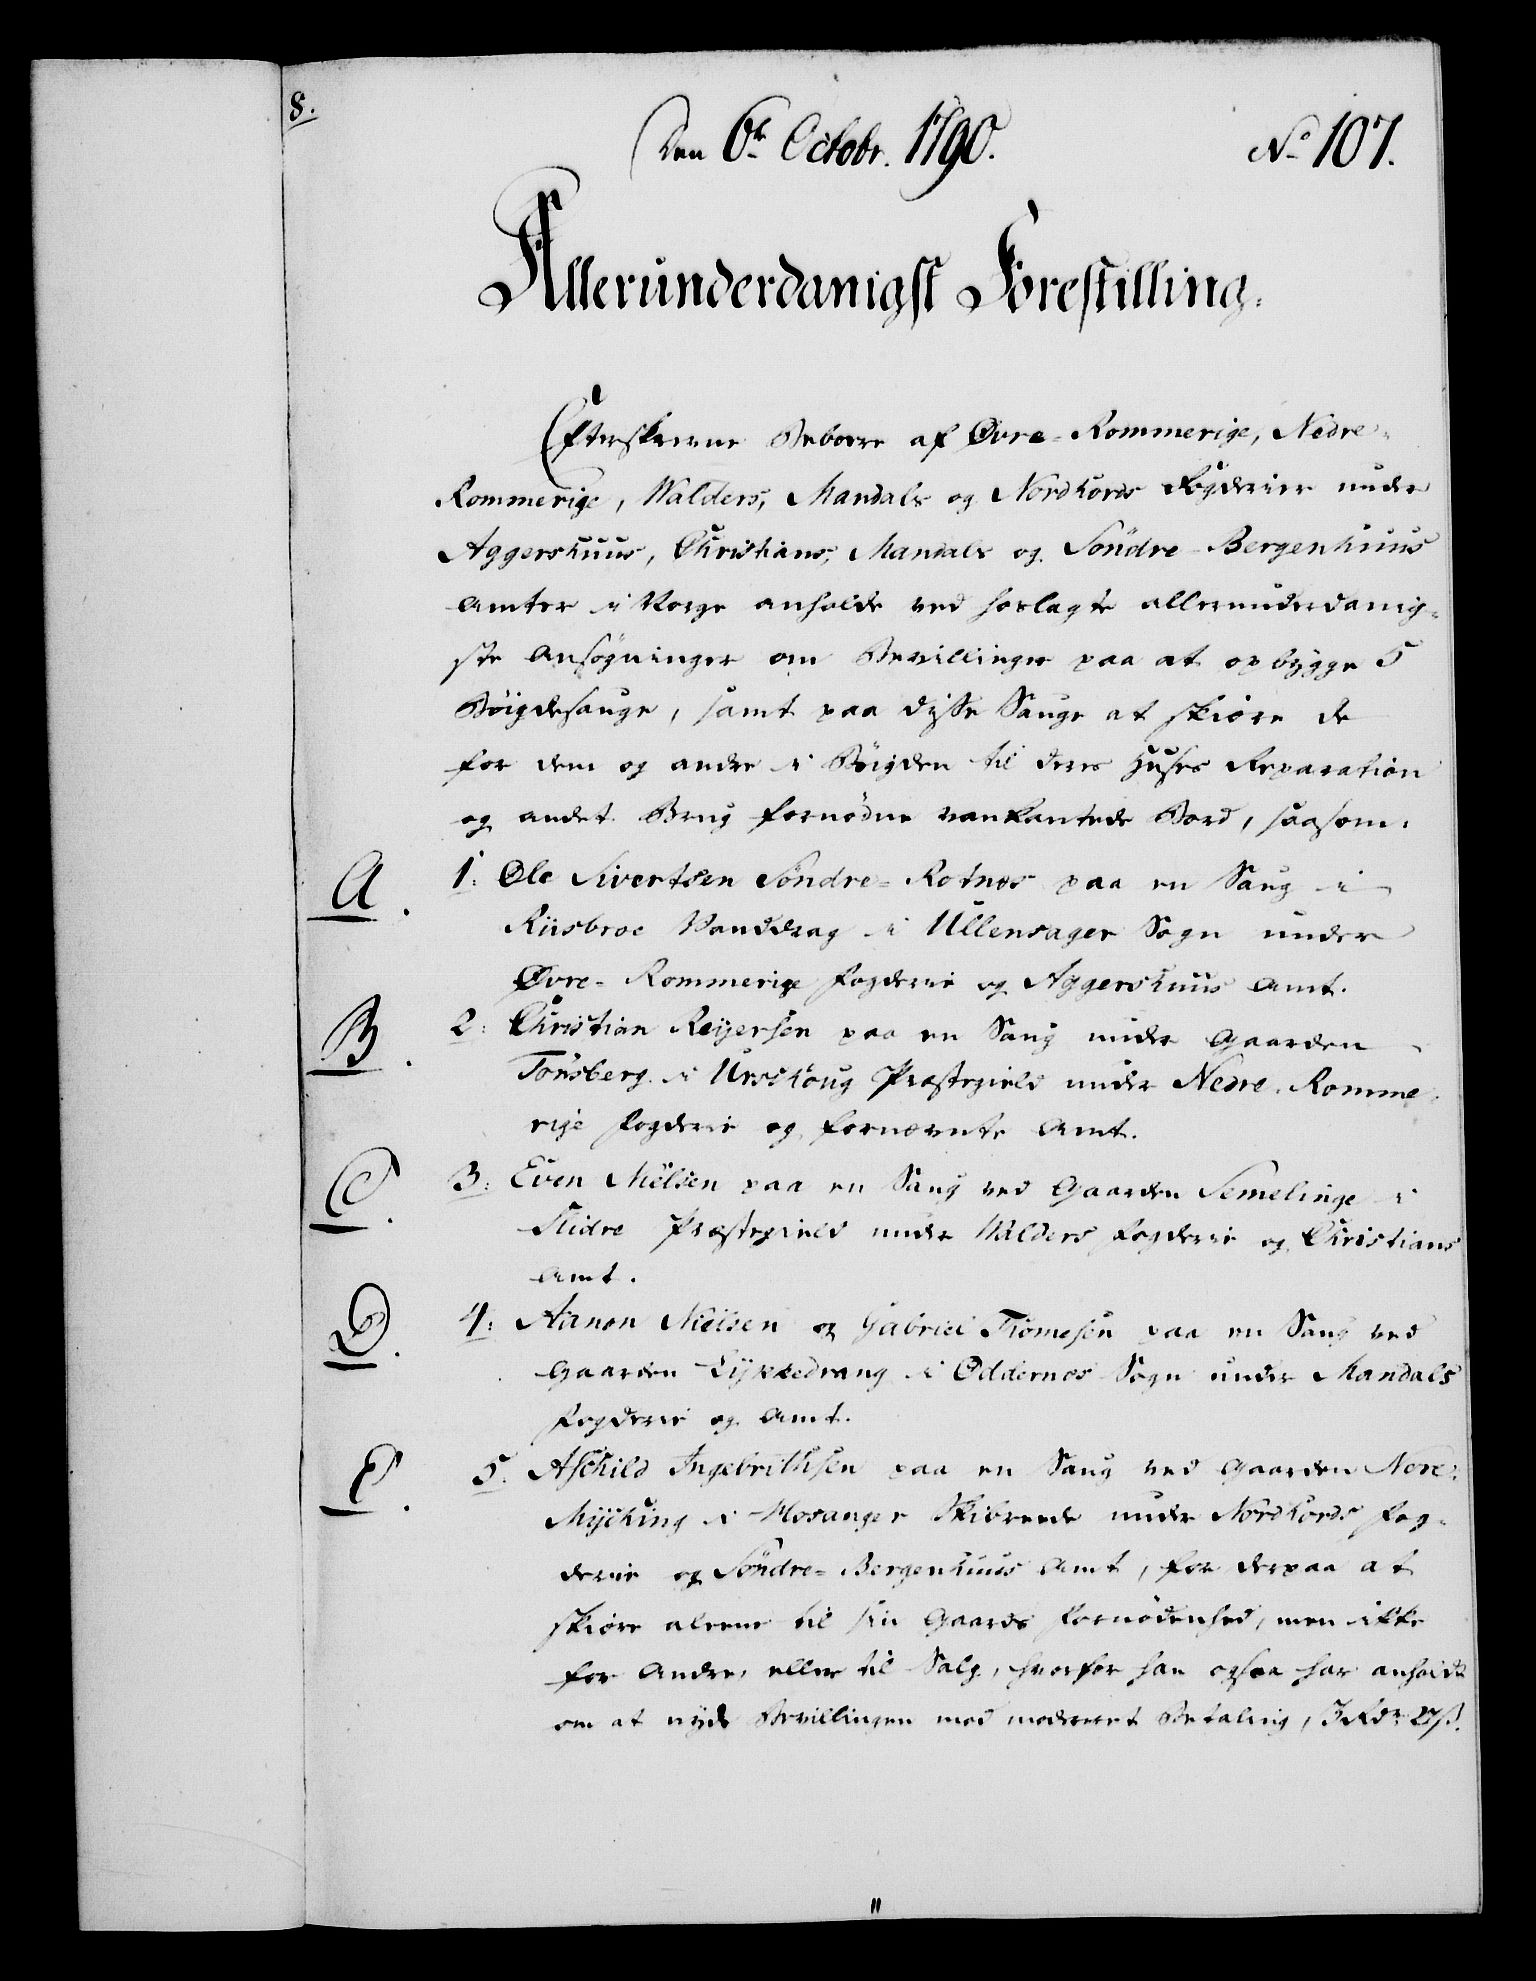 8.
Den 6te Octobr. 1790.
No 107.
Allerunderdanigst Forestilling.
Efterskrevne Beboere af Øvre-Rommerige, Nedre-
Rommerige, Walders, Mandals og Nordhords Fogderier under
Aggershuus, Christians, Mandals og Söndre-Bergenhuus
Amter i Norge anholde ved hoslagte allerunderdanig-
ste Ansögninger om Bevillinger paa at opbygge 5
Böigdesauge, samt paa disse Sauge at skiöre de
for dem og andre i Böigden til deres Huses Reparation
og andet Brug fornödne vankantede Bord, saasom:
A.
1. Ole Sivertsen Söndre-Rotnes paa en Saug i
Riisbroe Vanddrag i Ullensager Sogn under
Øvre-Rommerige Fogderie og Aggershuus Amt.
B.
2. Christian Reyersen paa en Saug under Gaarden
Tonsberg i Urskoug Præstegield under Nedre-Romme-
rige Fogderie og fornevnte Amt.
C.
3. Even Nielsen paa en Saug ved Gaarden Semelinge i
Slidre Præstegield under Walders Fogderie og Christians
Amt.
D.
4. Aanon Nielsen og Gabriel Tiomesen paa en Saug ved
Gaarden Lykkedrang i Oddernes Sogn under Mandals
Fogderie og Amt.
E.
5. Aschild Ingebrithsen paa en Saug ved Gaarden Nore-
Myching i Mosanger Skibrede under Nordhords Fog-
derie og Söndre-Bergenhuus Amt, for derpaa at
skiöre alene til sin Gaards Fornödenhed, men ikke
for Andre, eller til Salg, hvorfor han ogsaa har anholdt
om at nyde Bevillingen mod modereret Betaling, 3 Rdr